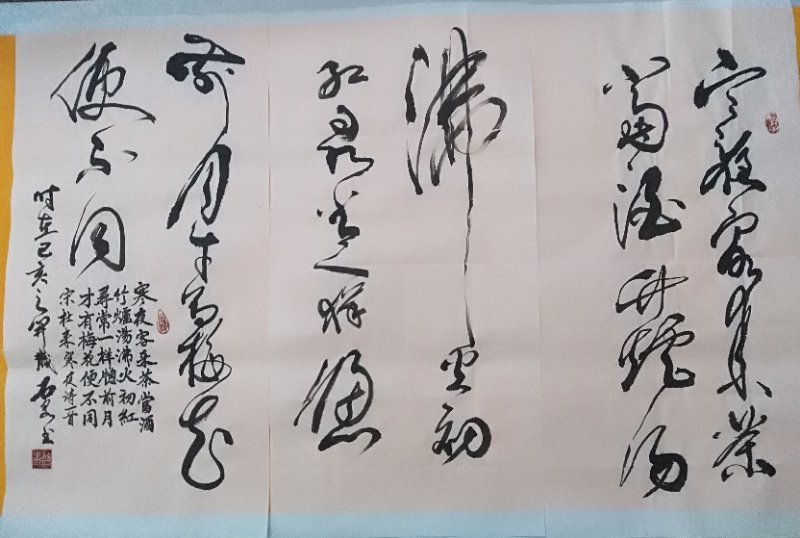 寒夜客来茶
當酒竹爐汤
沸火初
红尋常一样牕
前月才有梅花
便不同
寒夜客来茶當酒
竹爐湯沸火初紅
尋常一样牕前月
才有梅花便不同
宋杜耒寒夜诗一首
时在己亥之